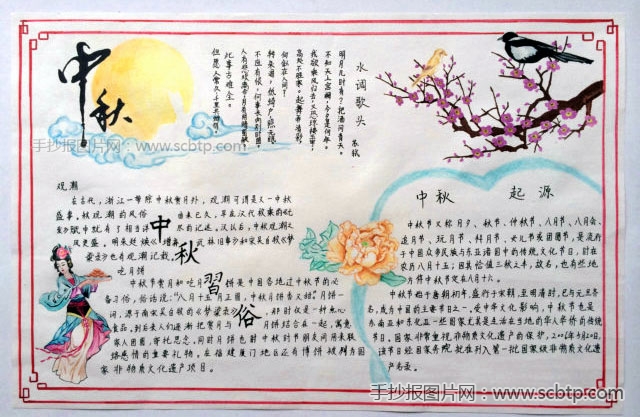 中秋
水调歌头
苏轼
明月几时有？把酒问青天。
不知天上宫阙，今夕是何年。
我欲乘风归去，又恐琼楼玉宇，
高处不胜寒。起舞弄清影，
何似在人间？
转朱阁，低绮户，照无眠。
不应有恨，何事长向别时圆？
人有悲欢离合，月有阴晴圆缺，
此事古难全。
但愿人长久，千里共婵娟。
手抄报图片网 - www.scbtp.com
中秋习俗
观潮
在古代，浙江一带除中秋赏月外，观潮可谓是又一中秋
盛事，
观潮的风俗
由来已久，早在汉代枚乘的
赋中就有了相当详
尽的记述。汉以后，中秋观潮
风更盛。明朱廷焕
武林旧事
和宋吴自牧《梦
粱录》也有观潮记载。
吃月饼
中秋节赏月和吃月
饼是中国各地过中秋节的必
备习俗，俗话说："八月十五月正圆，中秋月饼香又甜"。月饼一
词，源于南宋吴自牧的《梦粱录》
，那时仅是一种点心
食品。到后来人们逐渐把赏月与
月饼结合在一起，寓意
家人团圆，寄托思念。同时月饼也是中秋时节朋友间用来联
络感情的重要礼物。在福建厦门地区还有博饼被列为国
家非物质文化遗产项目。
中秋 起源
中秋节又称月夕、秋节、仲秋节、八月节、八月会、
追月节、玩月节、拜月节、女儿节或团圆节，是流行
于中国众多民族与东亚诸国中的传统文化节日，时在
农历八月十五；因其恰值三秋之半，故名，也有些地
方将中秋节定在八月十六。
中秋节始于唐朝初年，盛行于宋朝，至明清时，已与元旦齐
名，成为中国的主要节日之一。受中华文化影响，中秋节也是
东南亚和东北亚一些国家尤其是生活在当地的华人华侨的传统
节日。国家非常重视非物质文化遗产的保护，2006年5月20日，
该节日经国务院批准列入第一批国家级非物质文化遗
产名录。
手抄报图片网：www.scbtp.com